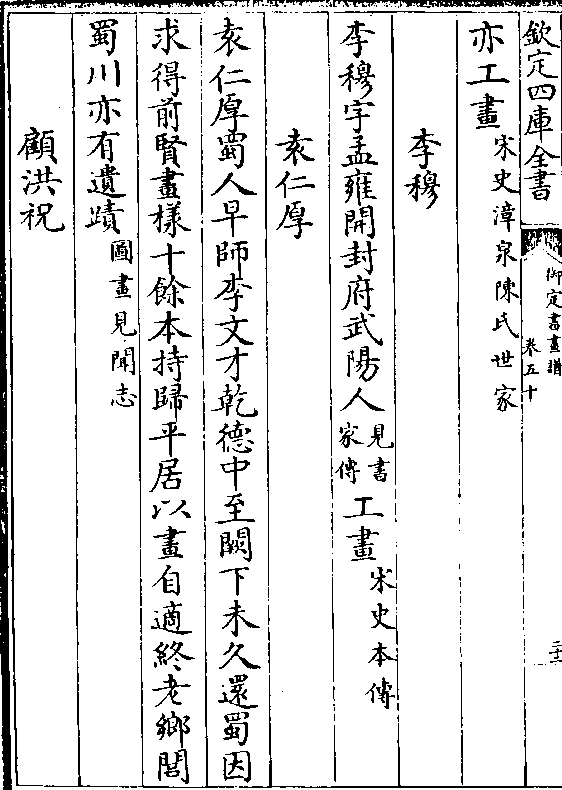 欽定四庫全書
御定書畫譜
卷五十
三十二
亦工畫宋史漳泉陳氏世家
李穆
李穆字孟雍開封府武陽人見書家傳工畫宋史本傳
袁仁厚
袁仁厚蜀人早師李文才乾德中至闕下未久還蜀因
求得前賢畫樣十餘本持歸平居以畫自適終老鄉閭
蜀川亦有遺蹟圖畫見聞志
顧洪祝